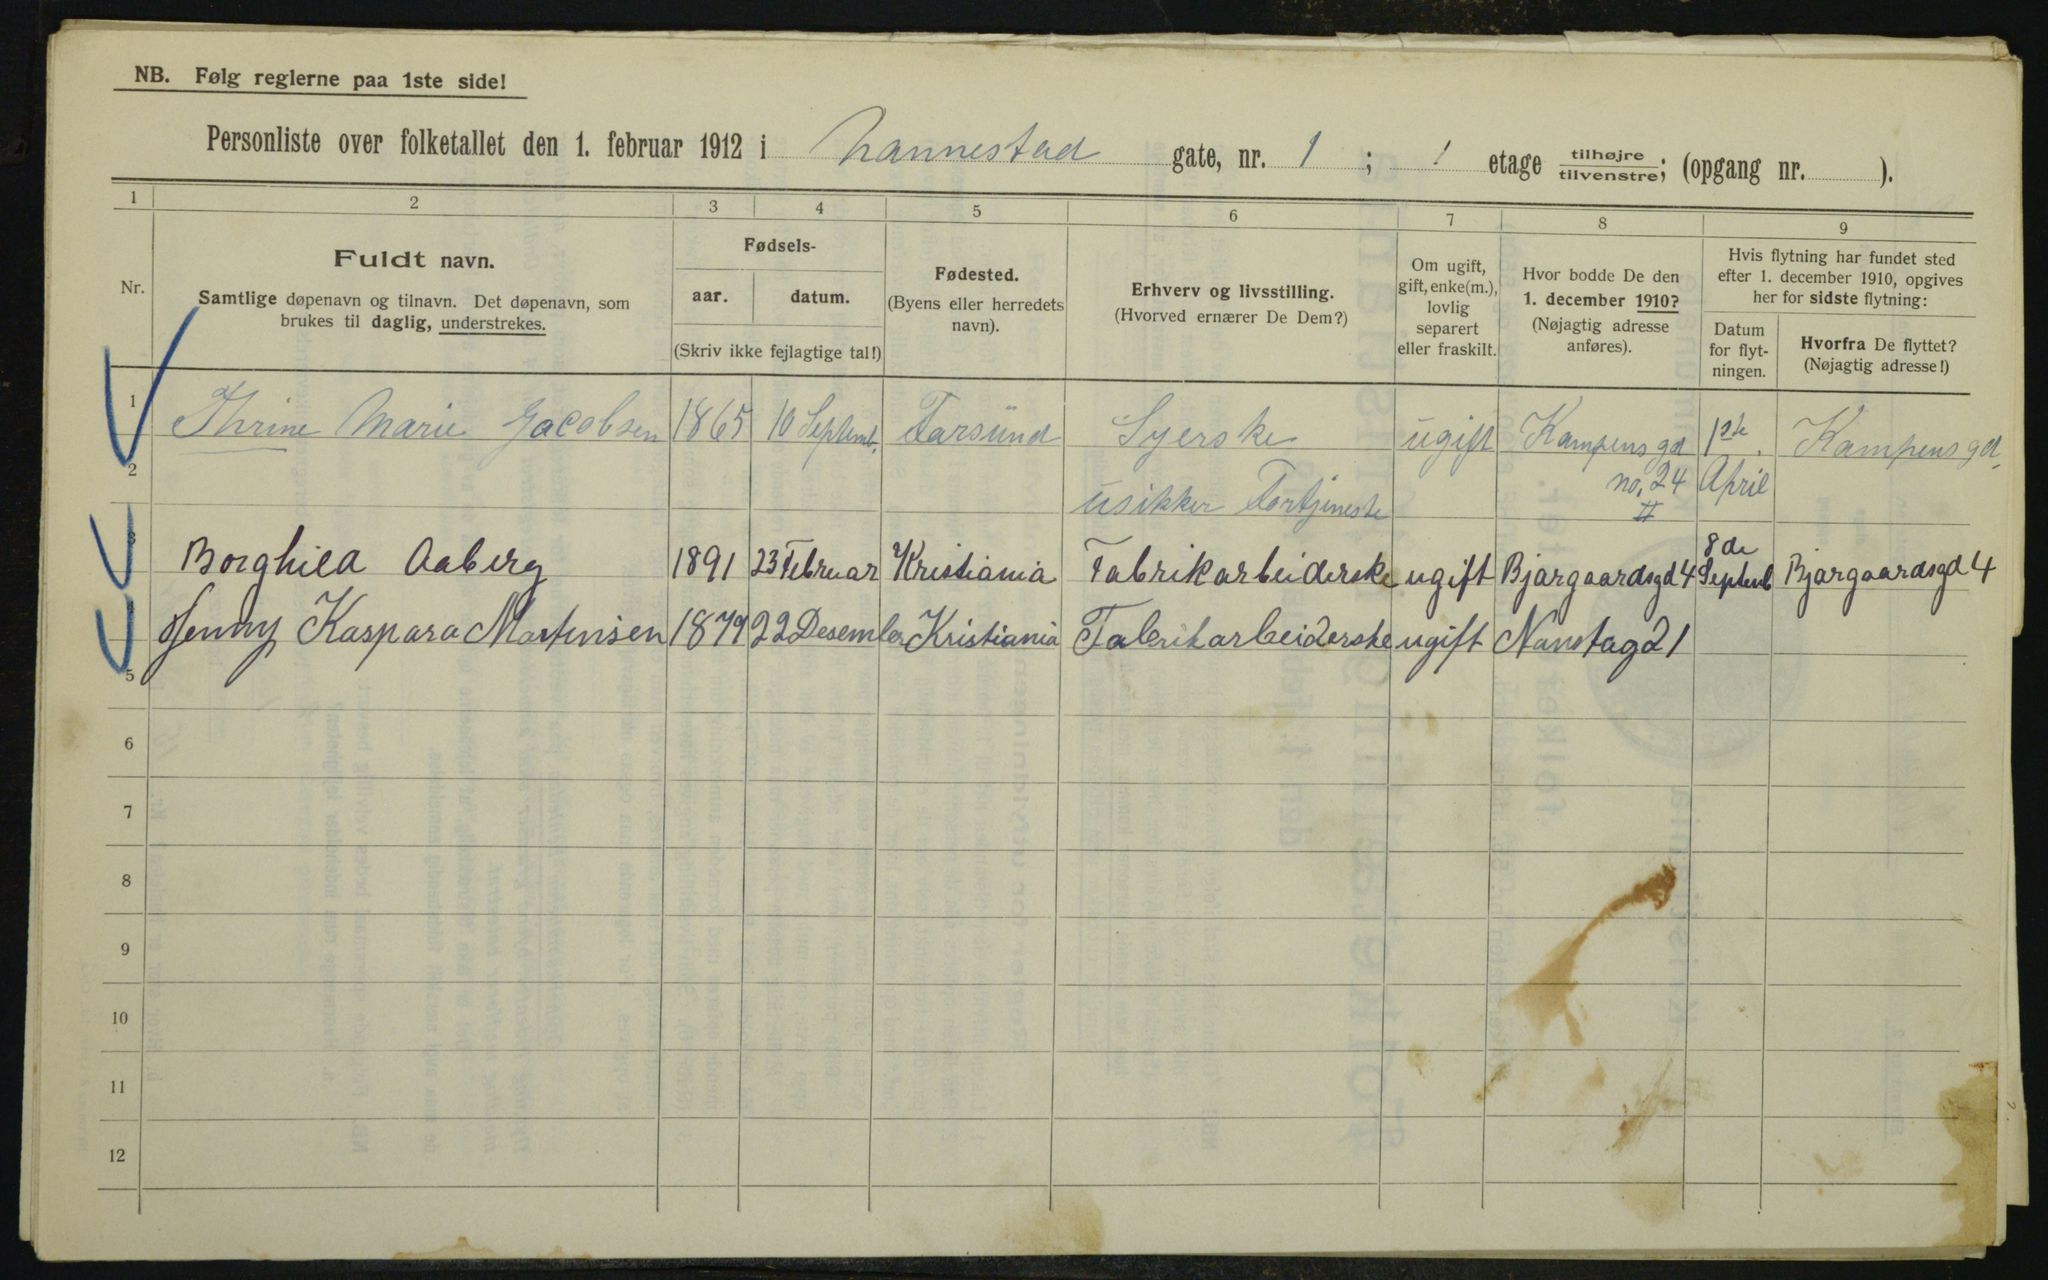 NB. Følg reglerne paa 1ste side!
Personliste over folketallet den 1. februar 1912 i Nannestad gate, nr. 1 ; 1 etage tilhøjre tilvenstre; (opgang nr. ).
1 2 3 4 5 6 7 8 9
Nr.
Fuldt navn.
Samtlige døpenavn og tilnavn. Det døpenavn, som
brukes til daglig, understrekes.
Fødsels-
aar. datum.
(Skriv ikke fejlagtige tal!)
Fødested.
(Byens eller herredets
navn).
Erhverv og livsstilling.
(Hvorved ernærer De Dem?)
Om ugift,
gift, enke(m.),
lovlig
separert
eller fraskilt.
Hvor bodde De den
1. december 1910?
(Nøjagtig adresse
anføres).
Hvis flytning har fundet sted
efter 1. december 1910, opgives
her for sidste flytning:
Datum
for flyt-
ningen.
Hvorfra De flyttet?
(Nøjagtig adresse!)
1
Thrine Marie Jacobsen 1865 10 Septemb. Farsund Syerske ugift Kampens gd 1ste Kampens gd.
2
no. 24 April
usikker Fortjeneste II
3
8de
Borghild Aaberg 1891 23 Februar Kristiania Fabrikarbeiderske ugift Bjørgaardsgd 4 Septemb Bjørgaardsgd 4
Jenny Kaspara Martinsen 1879 22 Desember Kristiania Fabrikarbeiderske ugift Nanstagd 21
5
6
7
8
9
10
11
12